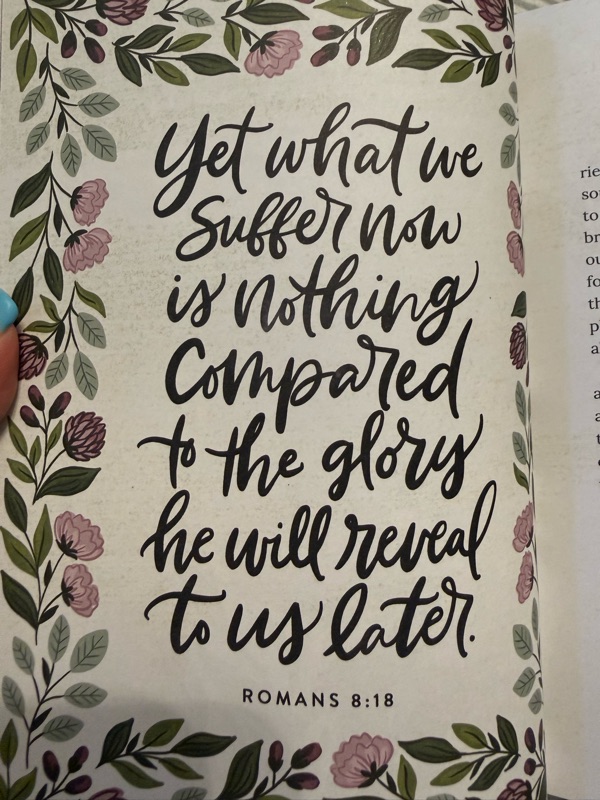 Yet what we
suffer now
is nothing
compared
to the glory
he will reveal
to us later.
ROMANS 8:18
to